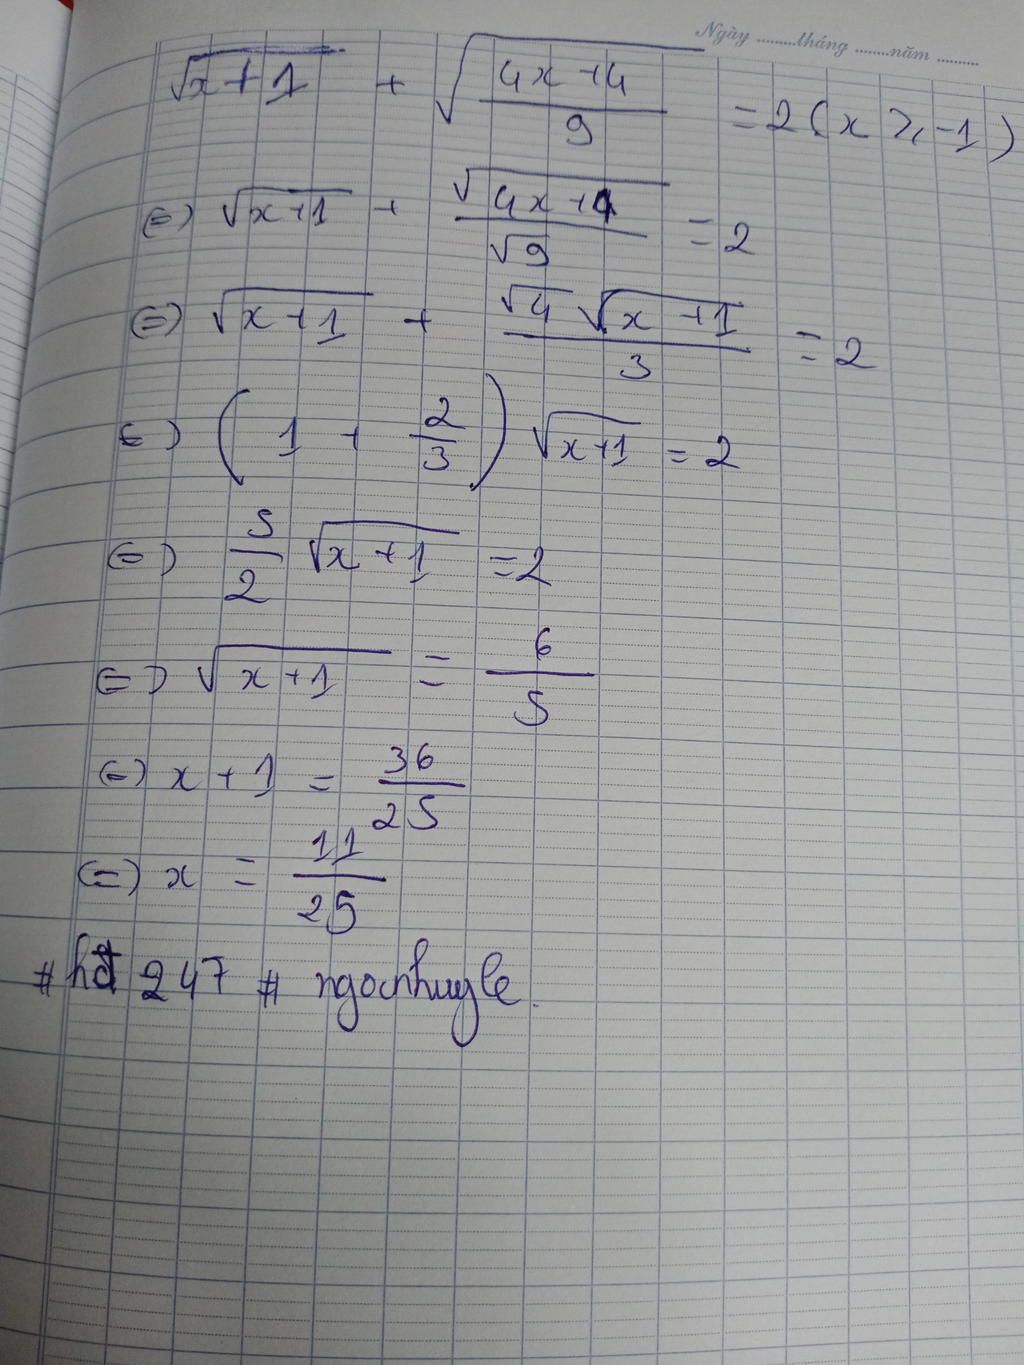 Ngày ..........tháng ........năm ..........
√(x+1) + √((4x+4)/9) = 2 (x ≥ -1)
(=) √(x+1) + √(4x+4)/√9 = 2
(=) √(x+1) + √4 √(x+1)/3 = 2
(=) (1 + 2/3) √(x+1) = 2
(=) 5/2 √(x+1) = 2
(=) √(x+1) = 6/5
(=) x + 1 = 36/25
(=) x = 11/25
# hđ 247 # ngocnhuyle.